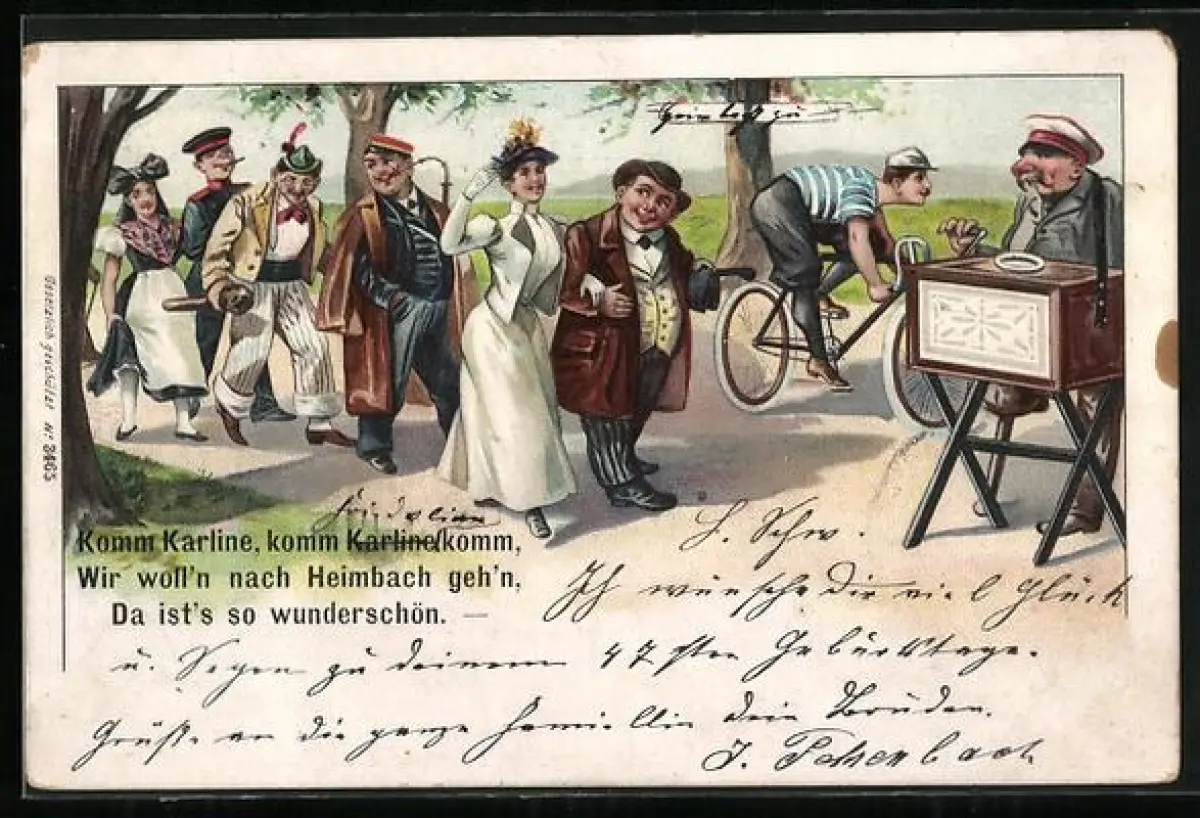 Gesetzlich geschützt Nº 3465
Friedolien
Komm Karline, komm Karline, komm,
Wir woll'n nach Heimbach geh'n,
Da ist's so wunderschön. —
L. Schw.
Ich wünsche Dir viel Glück
u. Segen zu deinem 47sten Geburtstage.
Grüße an die ganze Familie dein Bruder.
J.